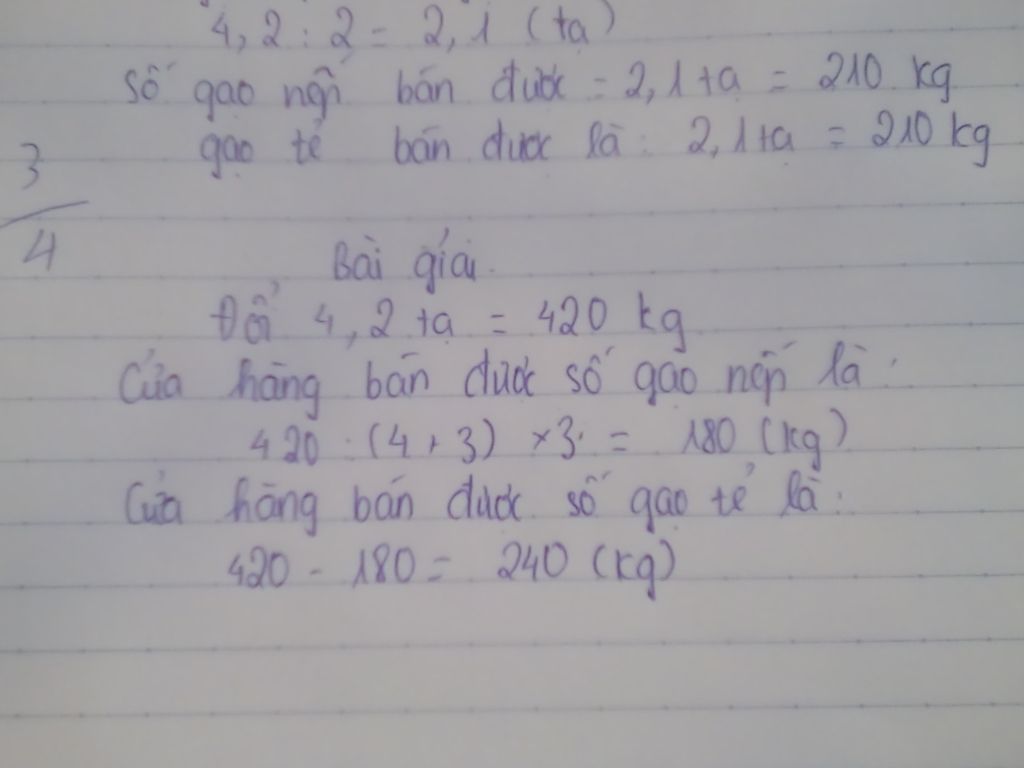 4, 2 : 2 = 2, 1 (tạ)
Số gạo nếp bán được = 2, 1 tạ = 210 kg
gạo tẻ bán được là : 2, 1 tạ = 210 kg
3
4
Bài giải.
Đổi 4, 2 tạ = 420 kg
Cửa hàng bán được số gạo nếp là :
420 : (4 + 3) × 3 = 180 (kg)
Cửa hàng bán được số gạo tẻ là :
420 - 180 = 240 (kg)